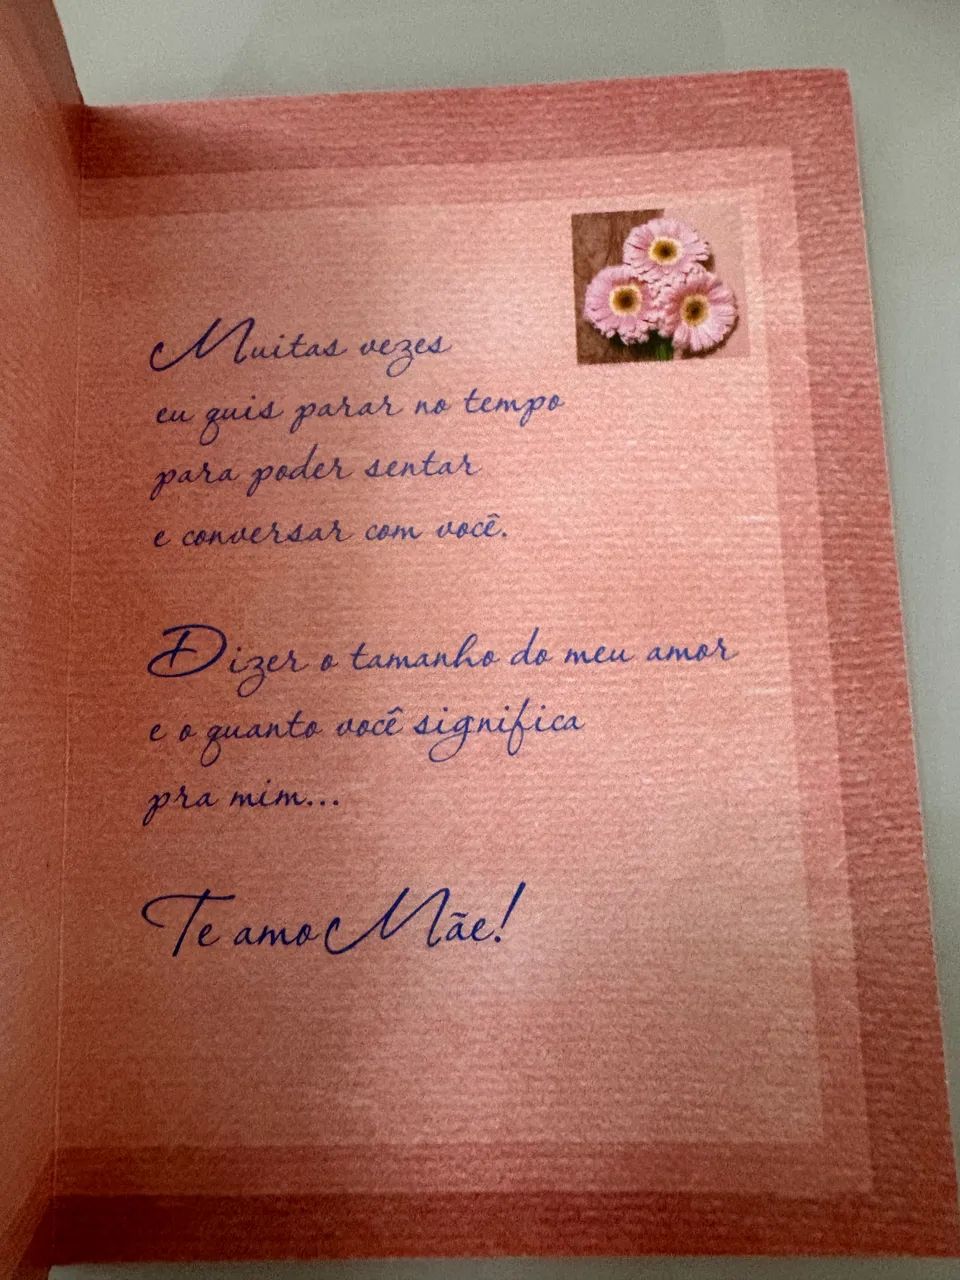 Muitas vezes
eu quis parar no tempo
para poder sentar
e conversar com você.
Dizer o tamanho do meu amor
e o quanto você significa
pra mim...
Te amo Mãe!